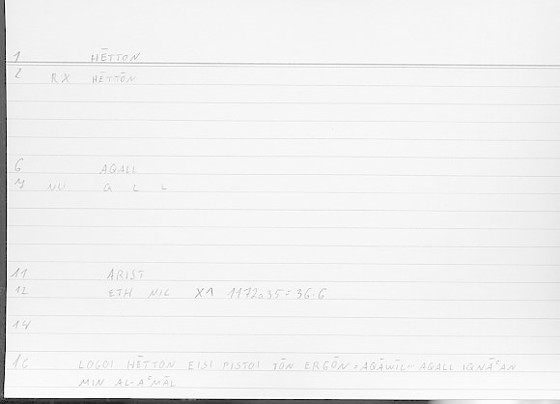 1 HĒTTON
2 RX HĒTTŌN
6 AQALL
7 NU Q L L
11 ARIST
12 ETH NIC X1 1172a35 = 36.6
14
1C LOGOI HĒTTON EISI PISTOI TŌN ERGŌN = AQĀWĪL- AQALL IQNĀʿAN
MIN AL-AʿMĀL